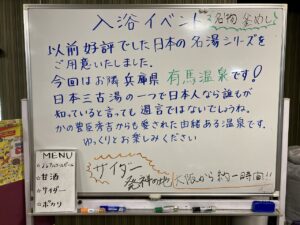 入浴イベント 名物 釜めし
以前好評でした日本の名湯シリーズを
ご用意いたしました。
今回はお隣兵庫県 有馬温泉です!
日本三古湯の一つで日本人なら誰もが
知っていると言っても過言ではないでしょうね。
かの豊臣秀吉からも愛された由緒ある温泉です。
ゆっくりとお楽しみください
サイダー
発祥の地 大阪から約一時間!!
MENU
☆ノンアルコールビール
☆甘酒
☆サイダー
☆ポカリ